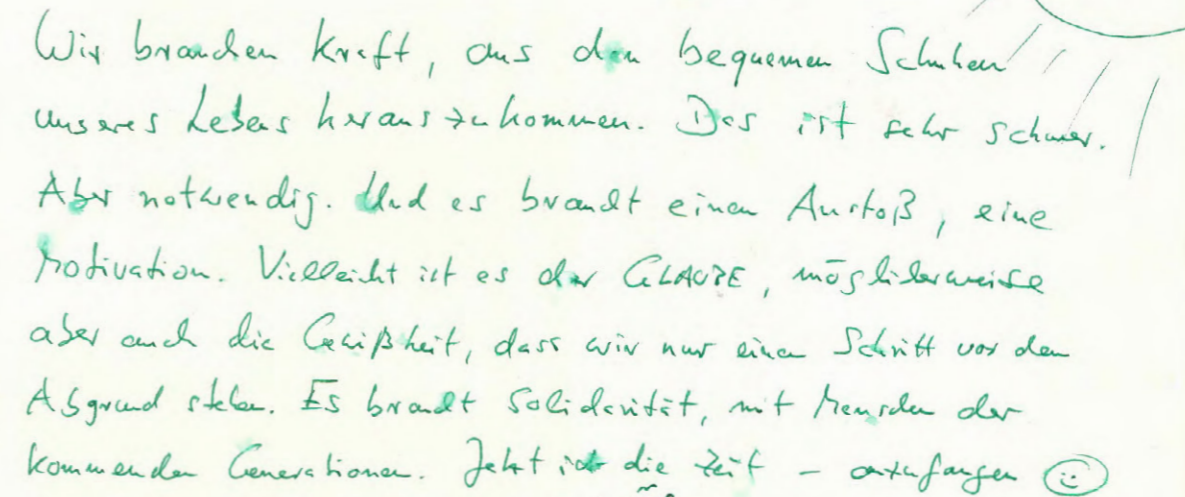 Wir brauchen Kraft, aus den bequemen Schuhen
unseres Lebens herauszukommen. Das ist sehr schwer.
Aber notwendig. Und es braucht einen Anstoß, eine
Motivation. Vielleicht ist es der GLAUBE, möglicherweise
aber auch die Gewißheit, dass wir nur einen Schritt vor dem
Abgrund stehen. Es braucht Solidarität, mit Menschen der
kommenden Generationen. Jetzt ist die Zeit – anzufangen